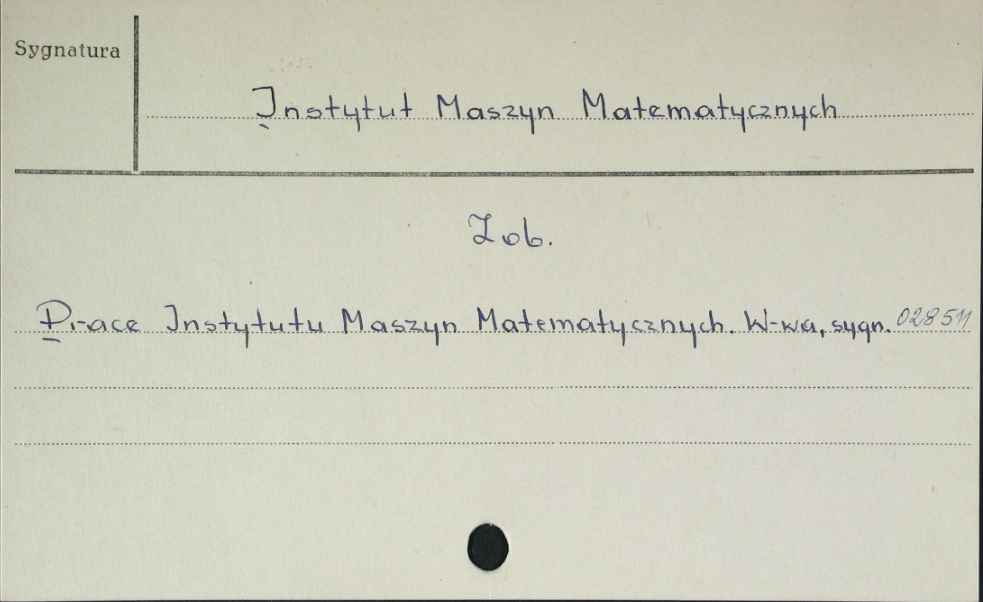 Sygnatura
Instytut Maszyn Matematycznych
Zob.
Prace Instytutu Maszyn Matematycznych. W-wa, sygn. 028511